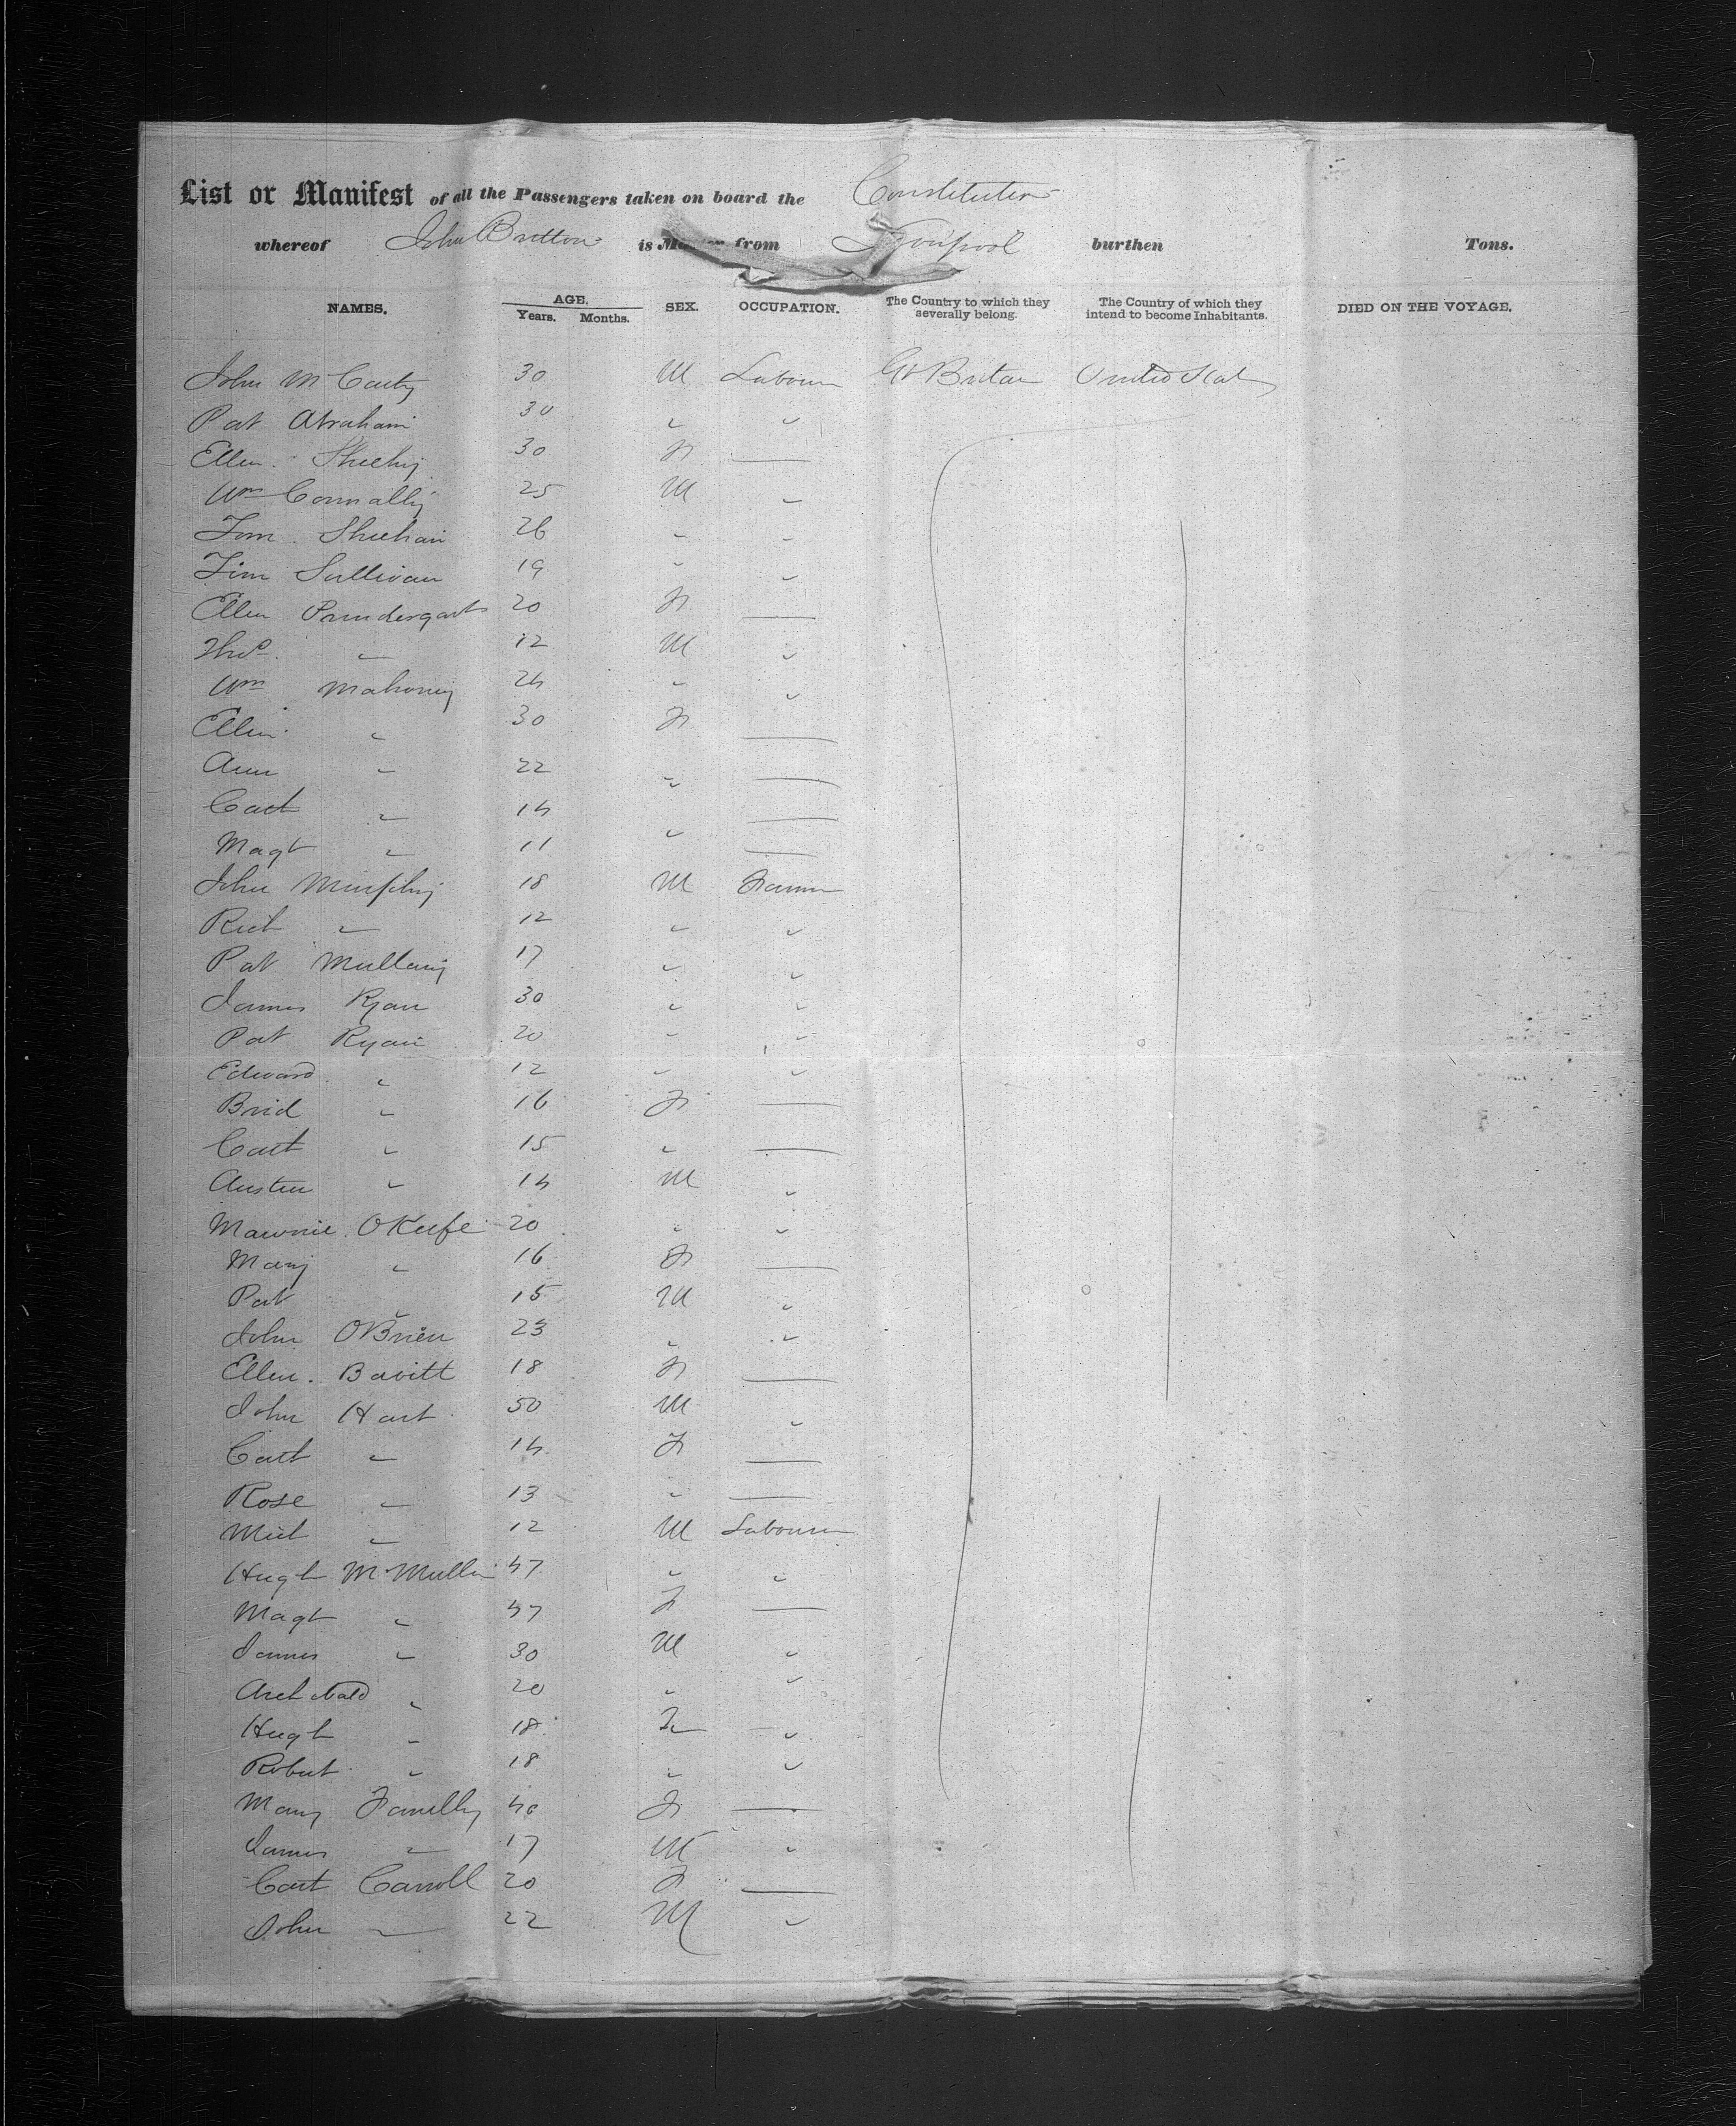 List or Manifest of all the Passengers taken on board the Constitution
whereof John Britton is Master from Liverpool burthen Tons.
NAMES. AGE. Years. Months. SEX. OCCUPATION. The Country to which they severally belong. The Country of which they intend to become Inhabitants. DIED ON THE VOYAGE.
John McCarty 30 M Labourer Gt Britain United States
Pat Abraham 30 " "
Ellen Sheehy 30 F —
Wm Connally 25 M "
Tom Sheehan 26 " "
Tim Sullivan 19 " "
Ellen Prundergast 20 F —
Thos " 12 M "
Wm Mahoney 24 " "
Ellen " 30 F —
Ann " 22 " —
Cath " 14 —
Magt " 11 " —
John Murphy 18 M Farmer
Rich " 12 " "
Pat Mullany 17 " "
James Ryan 30 " "
Pat Ryan 20 " "
Edward " 12 " "
Brid " 16 F —
Cath " 15 " —
Austen " 14 M "
Mawrie OKeefe 20 " "
Mary " 16 F —
Pat " 15 M "
John OBrien 23 " "
Ellen Bavitt 18 F —
John Hart 50 M "
Cath " 14 F —
Rose " 13 " —
Mich " 12 M Labourer
Hugh McMullin 47 " "
Magt " 47 F —
James " 30 M "
Archibald " 20 " "
Hugh " 18 "
Robert " 18 " "
Mary Farrelly 40 F —
James " 17 M "
Cath Carroll 20 F —
John " 22 M "